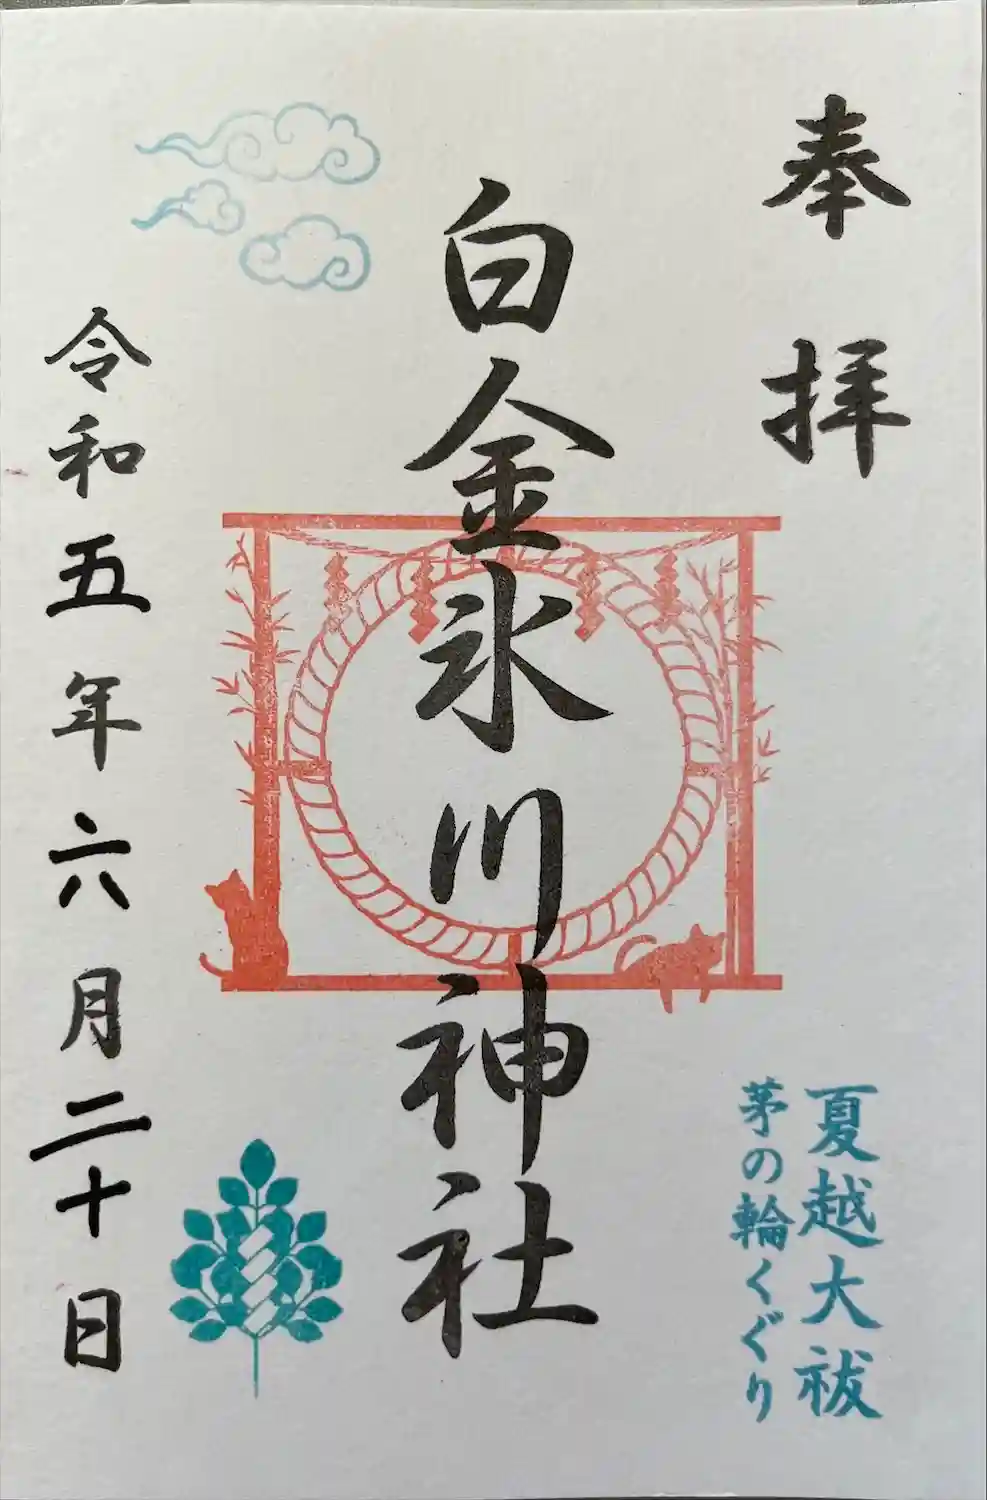 奉拝
夏越大祓
茅の輪くぐり
白金氷川神社
令和五年六月二十日